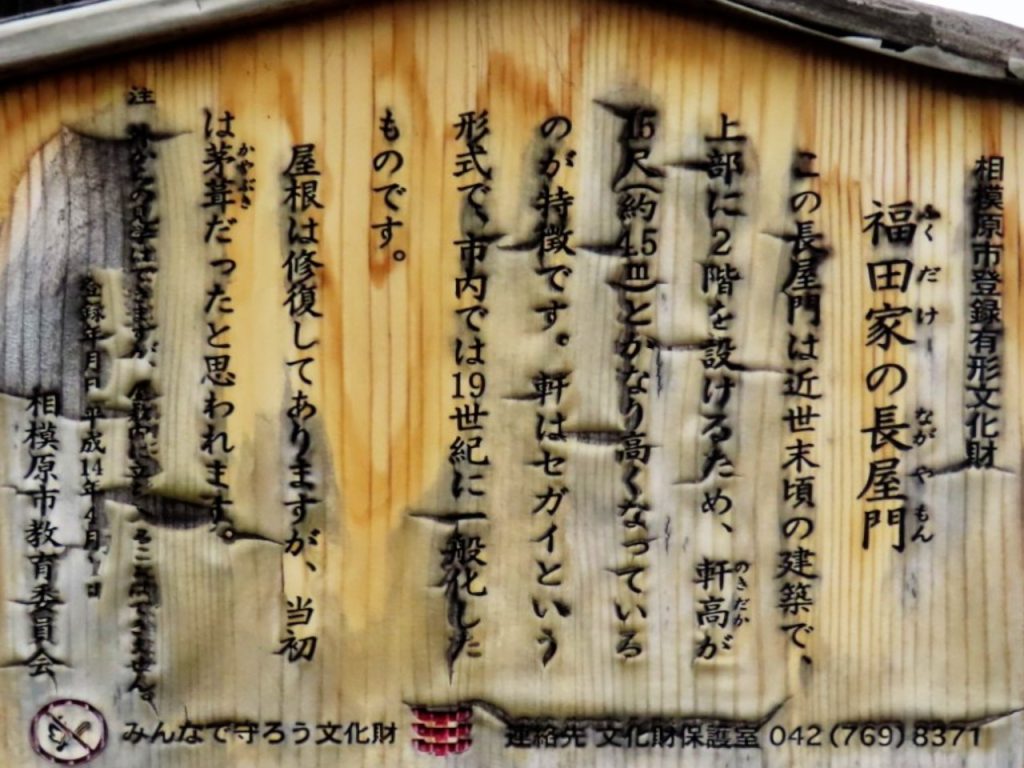 相模原市登録有形文化財
福田家の長屋門
ふくだけ ながやもん
この長屋門は近世末頃の建築で、
上部に2階を設けるため、軒高が
のきだか
15尺(約4.5m)とかなり高くなっている
のが特徴です。軒はセガイという
形式で、市内では19世紀に一般化した
ものです。
屋根は修復してありますが、当初
は茅葺だったと思われます。
かやぶき
注 の見学はできますが、
登録年月日 平成14年4月 日
相模原市教育委員会
みんなで守ろう文化財
連絡先 文化財保護室 042(769)8371